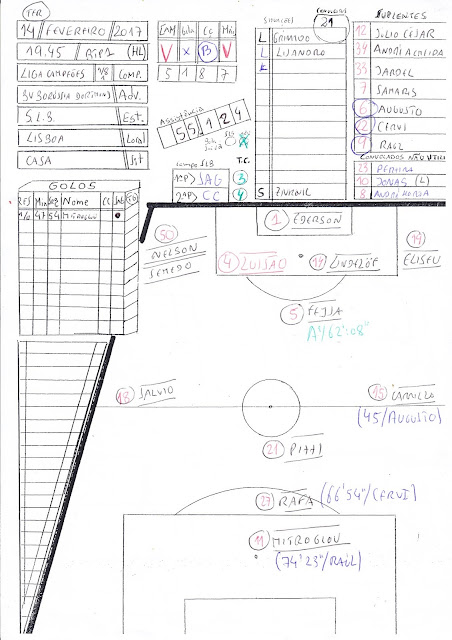 FFR
14 FEVEREIRO 2017
19.45 (HL)
LIGA CAMPEÕES 1/8 Comp.
BV BORUSSIA DORTMUND Adv.
S.L.B. Est.
LISBOA Local
CASA
CAM Cc
V X B V
5 1 8 7
Assistência
55.124
SLB T.C.
1ªP SAG 3
2ªP CC 4
CONVOCADOS
21
L GRIMALDO
L LISANDRO
L
S ZIVKOVIC
SUPLENTES
12 JÚLIO CÉSAR
34 ANDRÉ ALMEIDA
33 JARDEL
7 SAMARIS
6 AUGUSTO
2 CERVI
9 RAÚL
CONVOCADOS NÃO UTILIZ
23
10 JONAS (L)
8 ANDRÉ HORTA
GOLOS
RES Min Seg Nome CC
1/0 47 54 MITROGLOU
1 EDERSON
50 NELSON SEMEDO
4 LUISÃO
14 LINDELÖF
19 ELISEU
5 FEJSA
A 1/62':08"
18 SALVIO
15 CARRILLO
(45/AUGUSTO)
21 PIZZI
27 RAFA (66'54"/CERVI)
11 MITROGLOU
(74'23"/RAÚL)